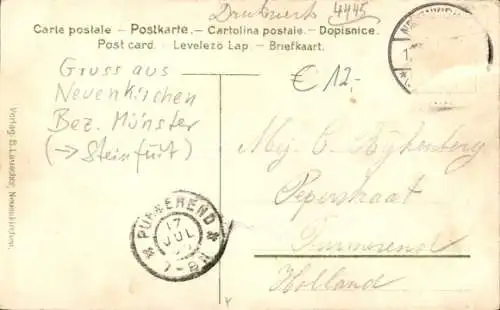 Drukwerk 4445
Carte postale – Postkarte. – Cartolina postale. – Dopisnice.
Post card. – Levelező Lap. – Briefkaart.
€ 12,-
Gruss aus
Neuenkirchen
Bez. Münster
(→ Steinfurt)
Mej. C.
Peperstraat
Purmerend
Holland
PURMEREND
17
JUL
7-8N
Verlag: B. Neuenkirchen.